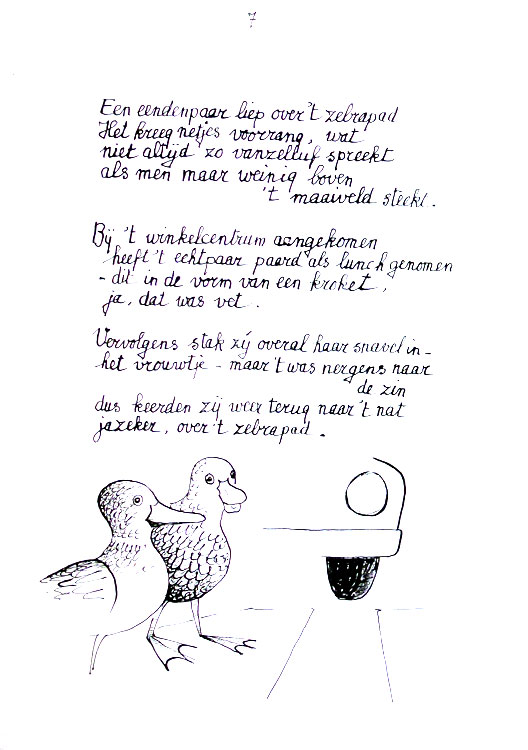 7
Een eendenpaar liep over 't zebrapad
Het kreeg netjes voorrang, wat
niet altijd zo vanzelluf spreekt
als men maar weinig boven
't maaiveld steekt.
Bij 't winkelcentrum aangekomen
heeft 't echtpaar paard als lunch genomen
- dit in de vorm van een kroket,
ja, dat was vet.
Vervolgens stak zij overal haar snavel in -
het vrouwtje - maar 't was nergens naar
de zin
dus keerden zij weer terug naar 't nat
jazeker, over 't zebrapad.